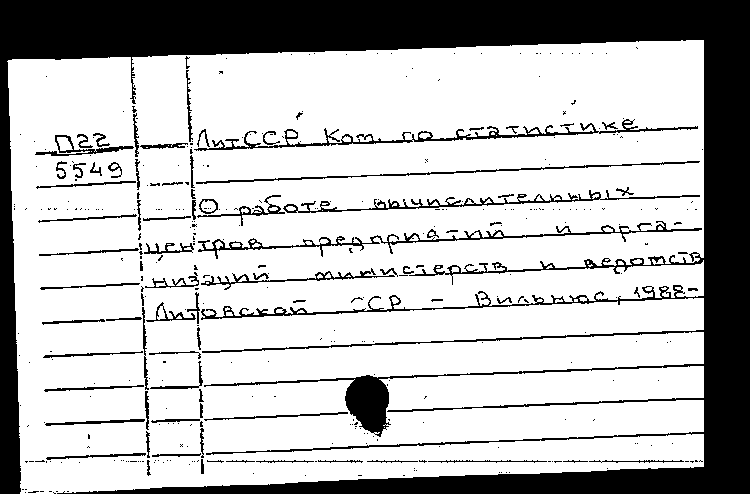 П22
5549
ЛитССР. Ком. по статистике
О работе вычислительных
центров предприятий и орга-
низаций министерств и ведомств
Литовской ССР - Вильнюс, 1988-